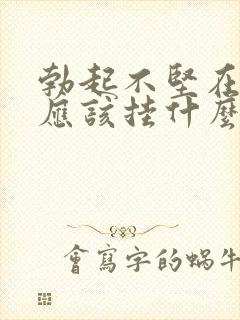 勃起不堅在
應該掛什麼
會寫字的蝸牛